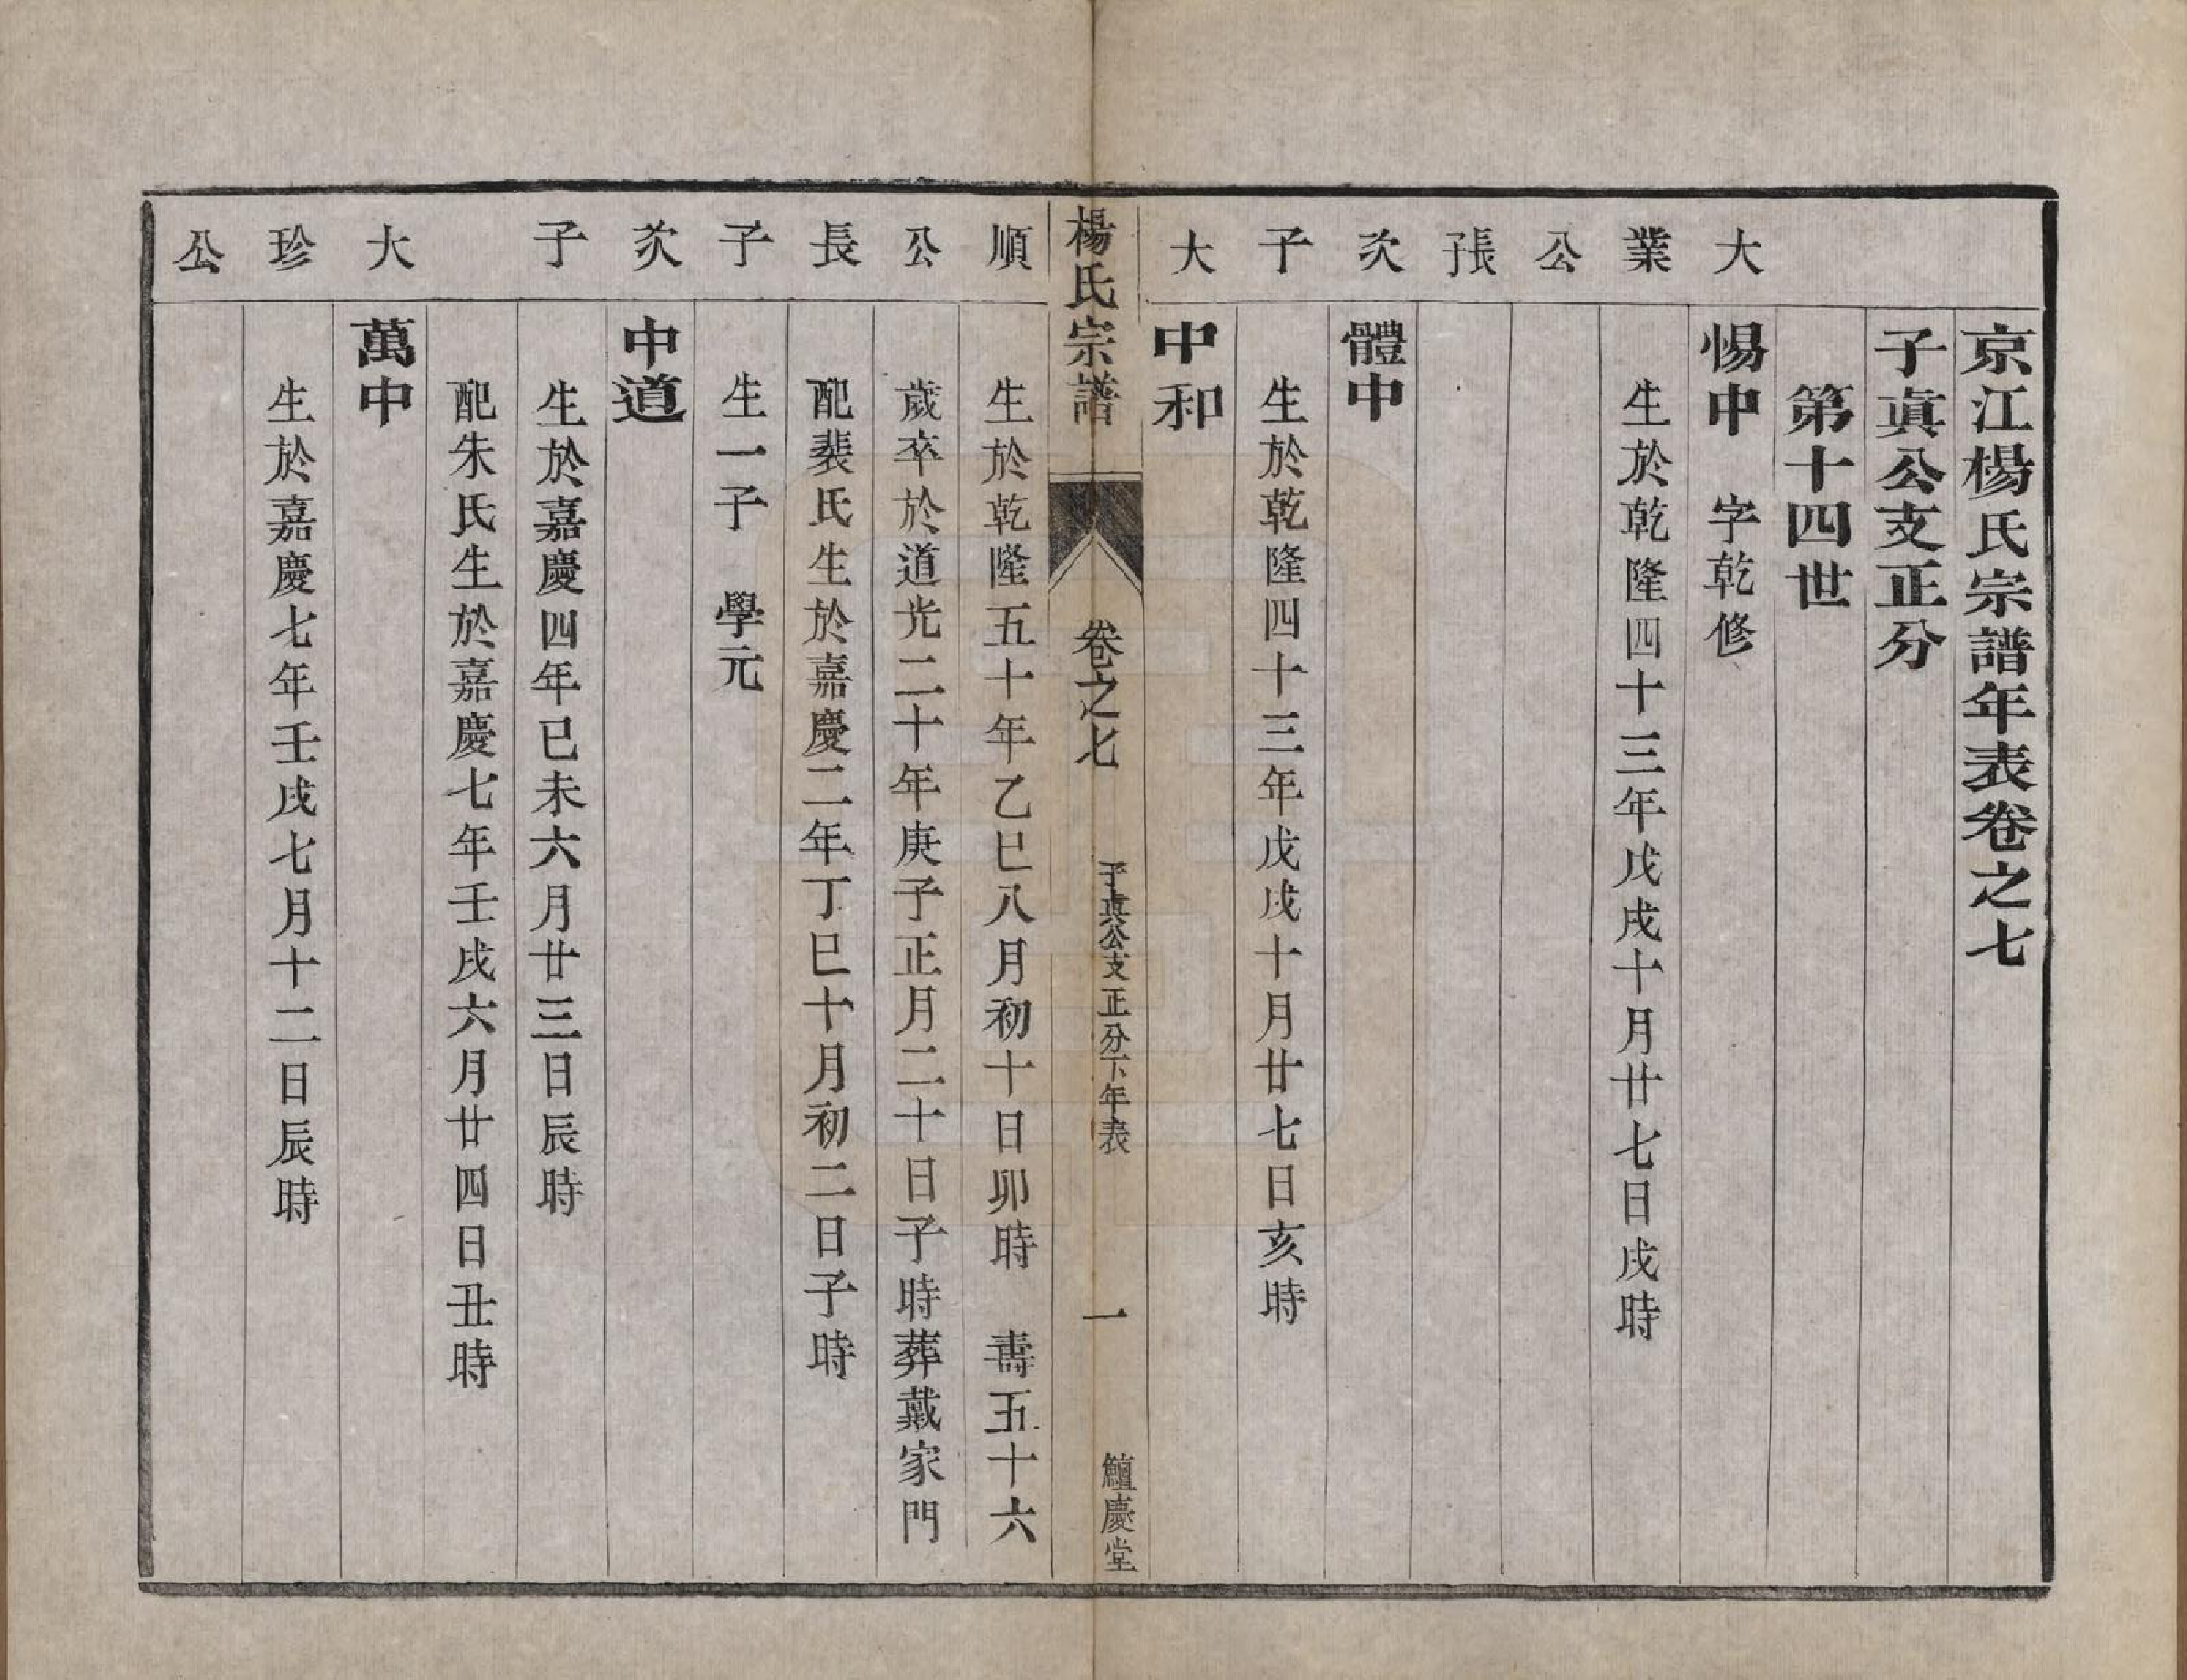 京江楊氏宗譜年表卷之七
子眞公支正分
第十四世
大 惕中 字乾修
業 生於乾隆四十三年戊戌十月廿七日戌時
公
長子
次 體中
子 生於乾隆四十三年戊戌十月廿七日亥時
大 中和
楊氏宗譜 卷之七 子眞公支正分下年表 一 鱣慶堂
順 生於乾隆五十年乙巳八月初十日卯時 壽五十六
公 歲卒於道光二十年庚子正月二十日子時葬戴家門
長 配裴氏生於嘉慶二年丁巳十月初二日子時
子 生一子 學元
次 中道
子 生於嘉慶四年己未六月廿三日辰時
配朱氏生於嘉慶七年壬戌六月廿四日丑時
大 萬中
珍 生於嘉慶七年壬戌七月十二日辰時
公